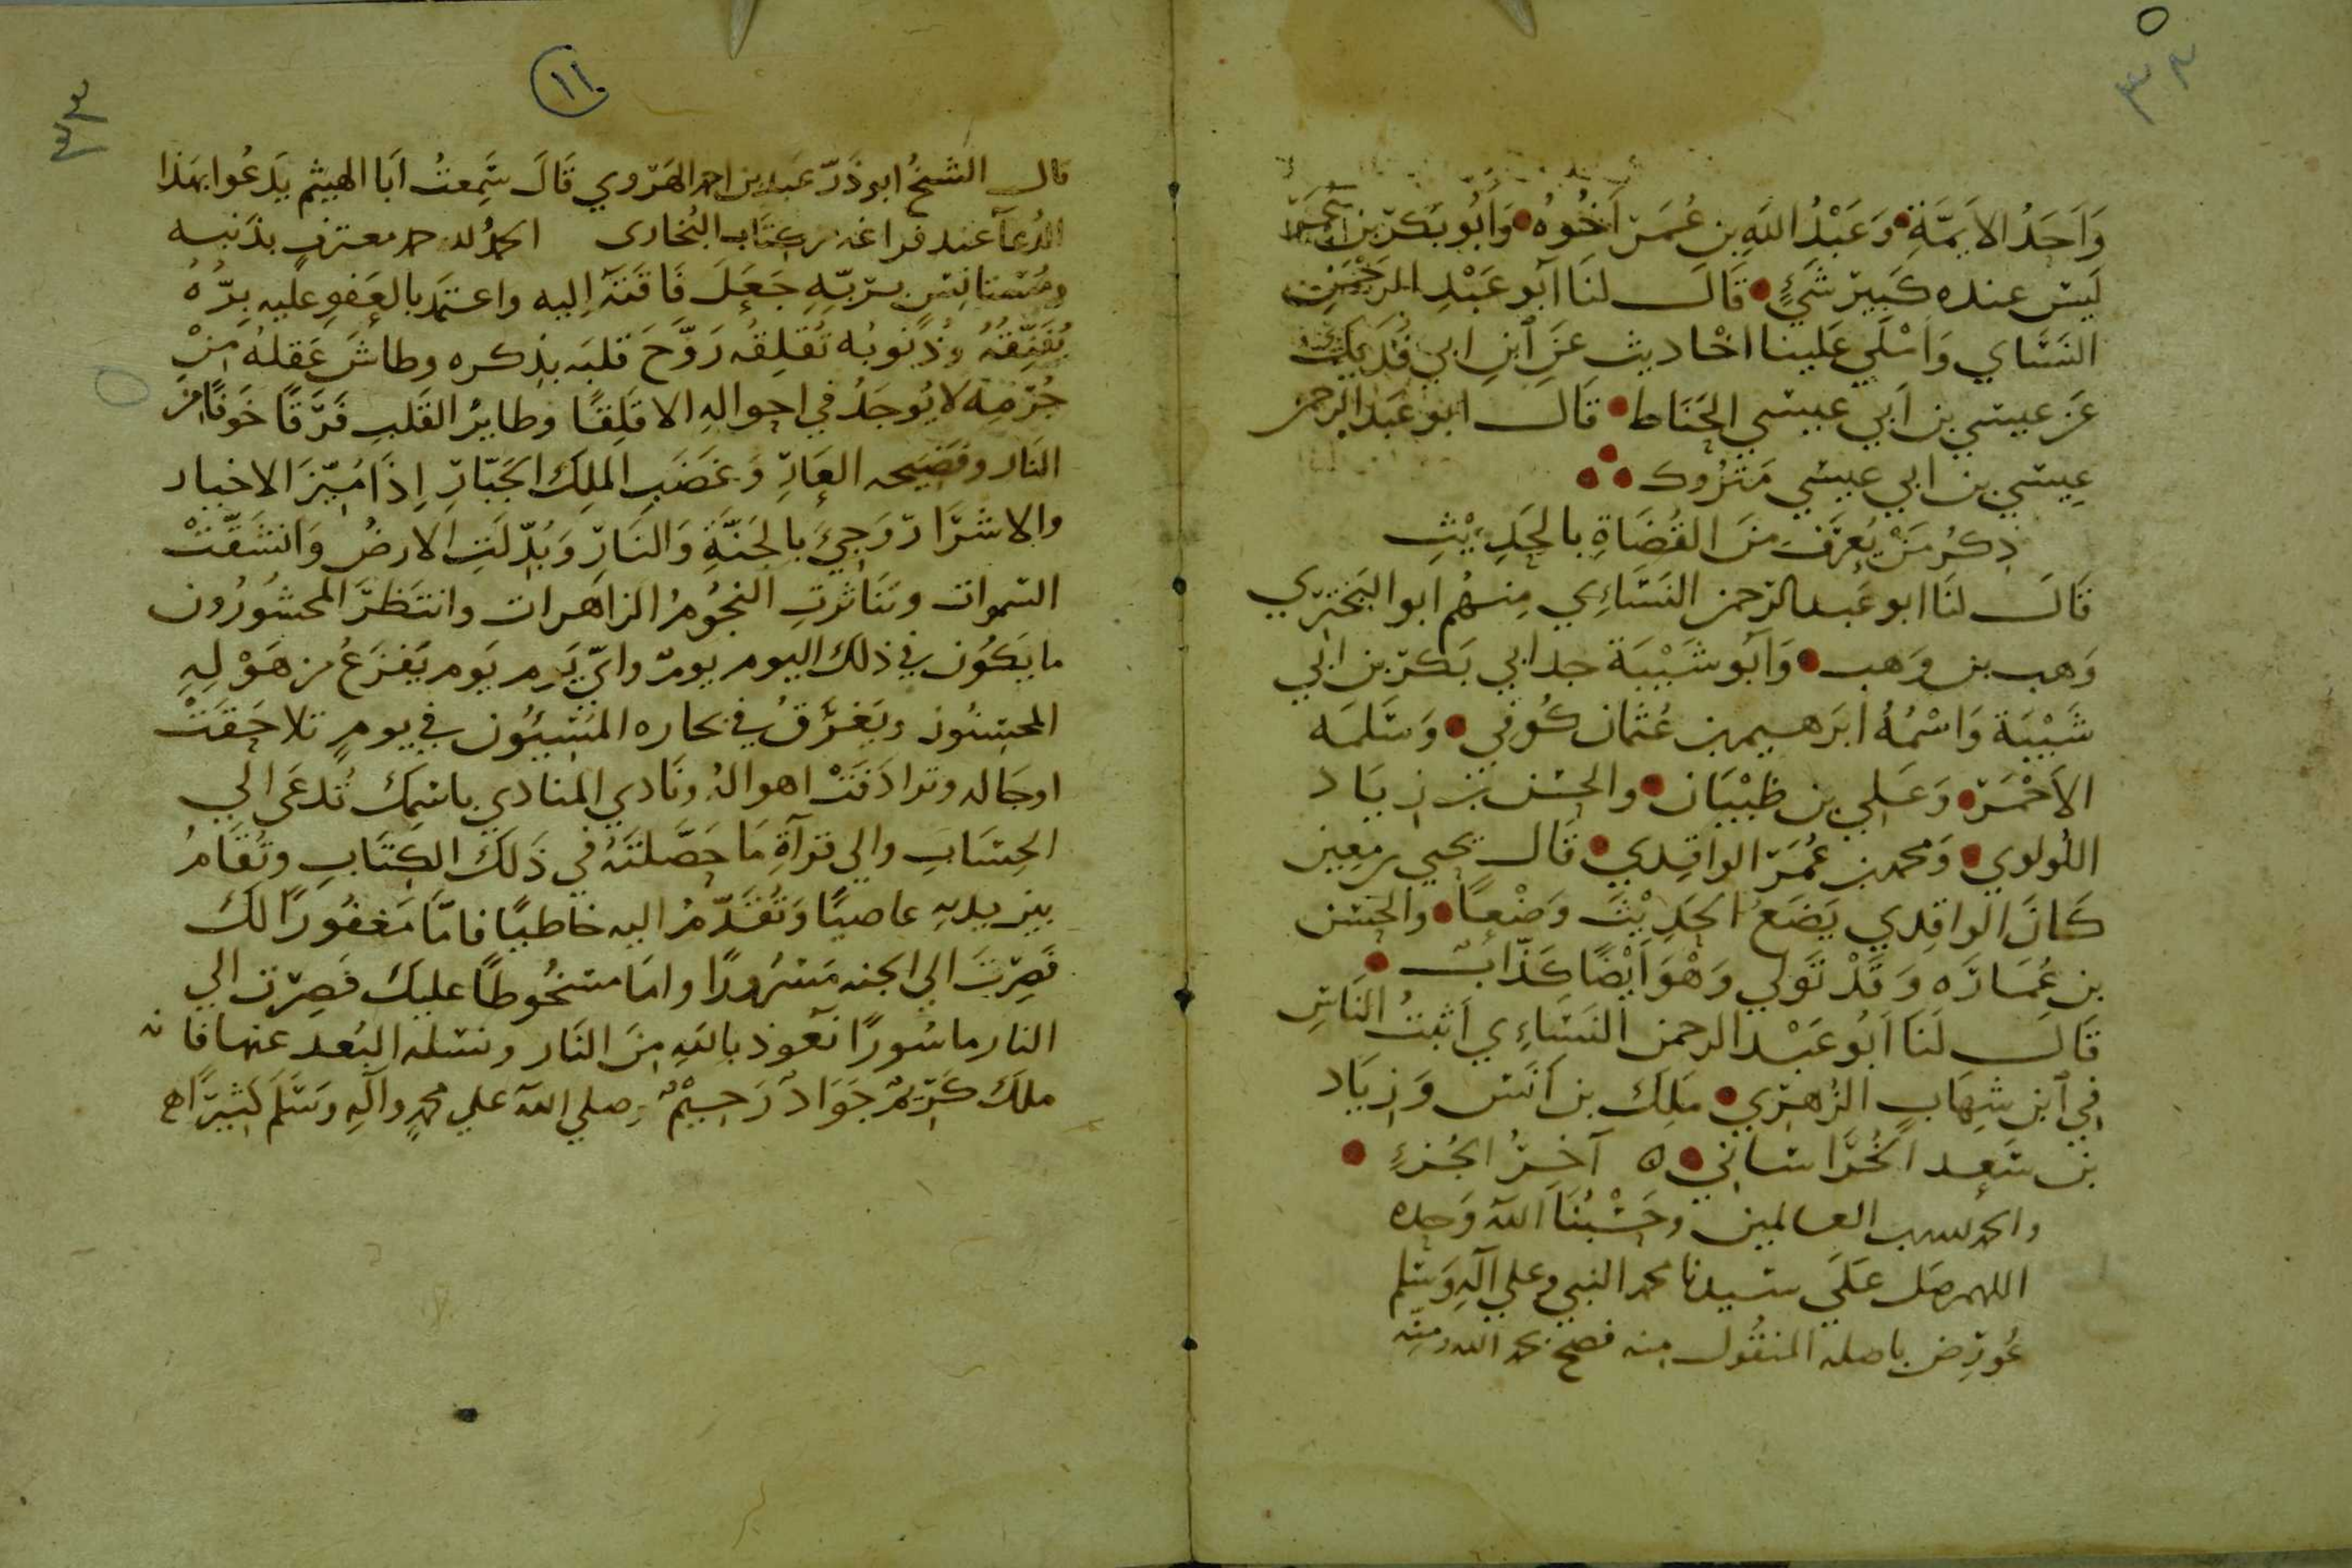 وَاَحَدُ الاَيِمَّةِ وَعَبْدُ اللَّهِ بن عُمَرَ اَخُوهُ وَاَبُو بَكرِ بن
لَيسَ عنده كَبِيرَ شَيْءٍ قَالَ لنَا اَبو عَبْدِ الرَحْمَنِ
النَسَاي وَاَمْلَي عَلَينا احْاديث عَنِ ابنِ ابي فُدَيكٍ
عَن عيسَي بن اَبي عيسَي الحَنَاط قَالَ ابو عَبدالرحمن
عِيسَي بن ابي عيسَي مَترُوك
ذِكرُ مَنْ يُعرَفُ منَ القُضَاةِ بالحَدِيْثِ
قَالَ لنَا ابو عَبدالرحمن النَسَاءِي مِنهُم ابو البَختَرِي
وَهب بن وَهب وَاَبو شَيْبَة جد ابي بَكر بن ابي
شَيْبَة وَاسْمُهُ ابرَهيم بن عُثمَان كُوفي وَسَلمَه
الاَحْمَر وَعَلِي بن ظَبْيَان والحسَن بن زيَاد
اللُولوي وَمحمد بن عُمَرَ الواقِدي قَال يحيي بن معِين
كَانَ الواقِدي يَضَعُ الحَدِيْثَ وَضْعاً والحسَن
بن عُمَارَه وَقَدْ تَوَلي وَهْوَ اَيْضًا كَذّابٌ
قَالَ لَنَا اَبُو عَبْد الرحمن النَسَاءِي اَثبتُ النَاسِ
في ابن شِهَابٍ الزُهرِي مَلِك بن اَنَس وَزيَاد
بن سَعِد الخُرَاسَاني ٥ آخِرُ الجُزءِ
والحمد لله رب العالمين وحَسْبُنَا اللّه وَحده
اللهم صَل عَلَي سَيدنا محمد النبي وعلي آلِهِ وَسَلم
عُورِض باصله المنقُول منه فصح بحمد الله ومنّه
١١
قال الشيخُ ابو ذَرّ عَبد بن احمد الهَروي قَالَ سَمِعتُ اَبَا الهيثم يَدعُوا بهَذا
الدُعآ عند فراغه من كِتَاب البُخَاري الحمدُ لله حمد معترفٍ بذَنبه
ومُستانِسٍ بِرَبِّهِ جَعَلَ فَاقَتَهُ اِليه واعتمَد بالعَفوِ عليه بِرُّهُ
وذُنُوبُه تُقلِقُه رَوَّحَ قَلبَه بذكره وطاشَ عَقلهُ مِنْ
جُرمِهِ لا يُوجَدُ في احوالِهِ الا قَلِقًا وطايرُ القَلبِ فَرَقًا خَوفًا من
النَار وفَضِيحه العَارِ وَغَضَبِ المَلِك الجَبّارِ اِذَا مُيّزَ الاخيار
والاشرَار وَجِيَ بالجَنَّةِ وَالنَارِ وَبُدّلَتِ الارضُ وَانشَقّتْ
السَموات وتَنَاثرتِ النجُومُ الزاهرات وانتَظرَ المحشورُون
ما يَكُون في ذلك اليوم يومٌ واَيّ يَوم يَوم يَفزَعُ من هَوْلِهِ
المحسِنُون ويَغرَقُ في بحاره المُسِيئُون في يومٍ تلاحَقَتْ
اوجَاله وترادَفَتْ اهوالهُ ونَادي المنادي باسْمك تُدعَى الي
الحِسَابِ والي قرآةِ مَا حَصَّلتَهُ في ذَلكَ الكِتَابِ وتُقَامُ
بين يديهِ عاصيًا وَتُقَدَّمُ اليه خاطيًا فامَّا مَغفُورًا لكَ
فَصِرتَ الي الجنه مَسرُورًا وامَا مسخُوطًا عليكَ فَصِرت الي
النار ماسُورًا نعَوذ باللهِ مِنَ النَار ونسَله البُعد عنها فانه
ملك كَرِيمٌ جَوَادٌ رَحِيْمٌ وصلي اللّه علي محمدٍ وآلِهِ وسَلّمَ كثيرًا